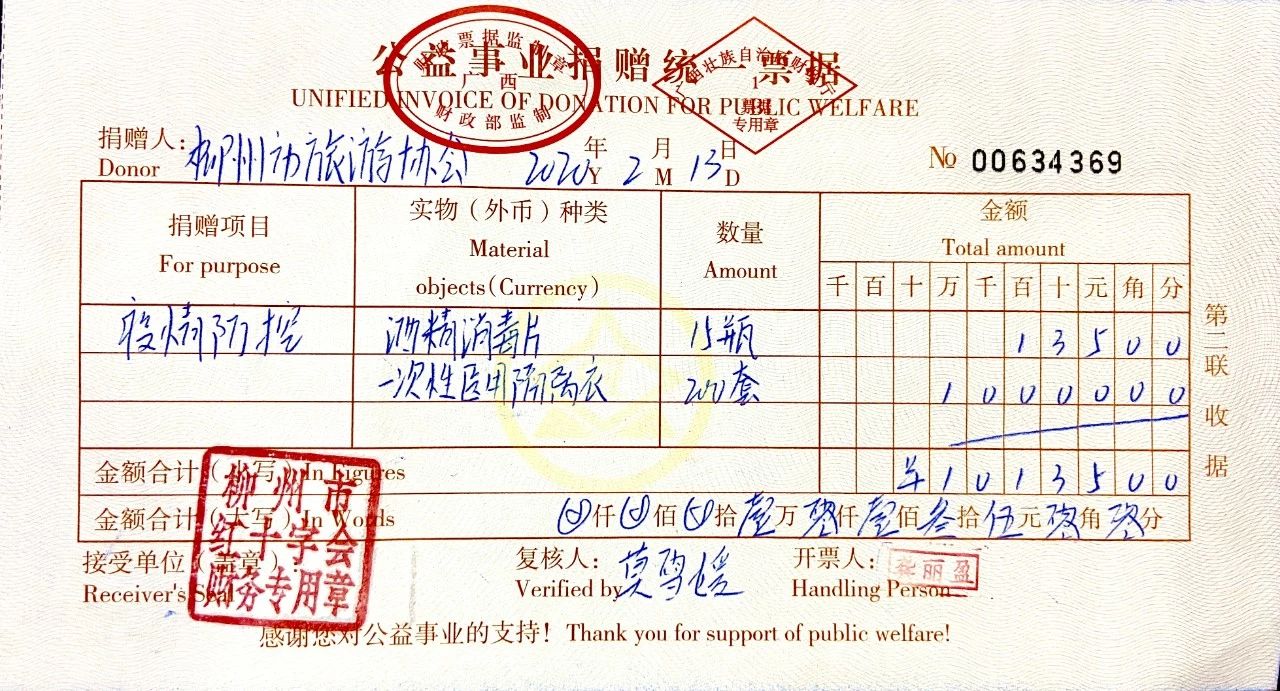 公益事业捐赠统一票据
财政票据监制章
广西
财政部监制
广西壮族自治区财政厅
1
票据
专用章
UNIFIED INVOICE OF DONATION FOR PUBLIC WELFARE
捐赠人: 柳州市旅游协会 2020年 2月 13日
Donor Y M D № 00634369
捐赠项目 实物(外币)种类 数量 金额
For purpose Material objects(Currency) Amount Total amount
千 百 十 万 千 百 十 元 角 分
疫情防控 酒精消毒片 15瓶 1 3 5 0 0
一次性医用隔离衣 200套 1 0 0 0 0 0 0
金额合计(小写)In Figures ¥ 1 0 1 3 5 0 0
金额合计(大写)In Words 仟 佰 拾 壹万 零仟 壹佰 叁拾 伍元 零角 零分
接受单位(盖章): 复核人: 莫雪媛 开票人:
Receiver's Seal Verified by Handling Person
柳州市
红十字会
财务专用章
丽盈
感谢您对公益事业的支持! Thank you for support of public welfare!
第二联 收据